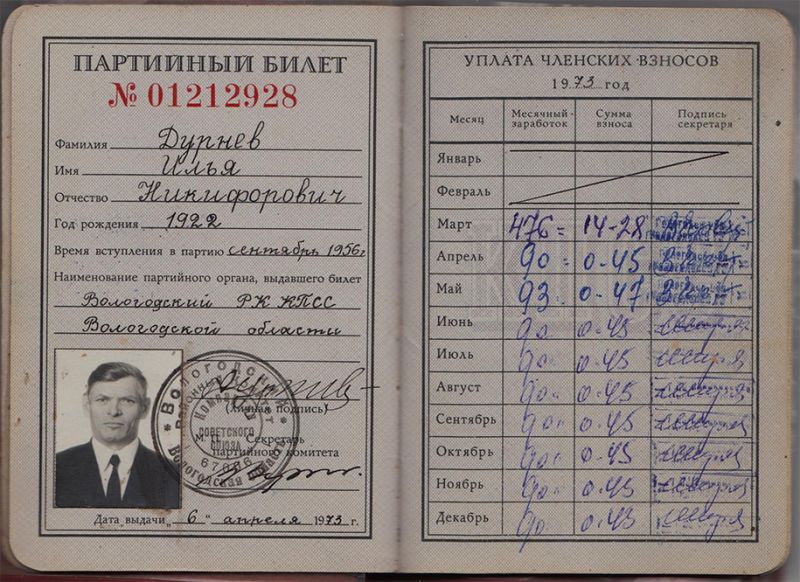 ПАРТИЙНЫЙ БИЛЕТ
№ 01212928
Фамилия Дурнев
Имя Илья
Отчество Никифорович
Год рождения 1922
Время вступления в партию сентябрь 1956г
Наименование партийного органа, выдавшего билет
Вологодский РК КПСС
Вологодской области
(Личная подпись)
М. П. Секретарь
партийного комитета
Дата выдачи „6“ апреля 1973 г.
УПЛАТА ЧЛЕНСКИХ ВЗНОСОВ
1973 год
Месяц Месячный заработок Сумма взноса Подпись секретаря
Январь
Февраль
Март 476= 14-28
Апрель 90= 0-45
Май 93= 0-47
Июнь 90= 0-45
Июль 90= 0-45
Август 90= 0-45
Сентябрь 90= 0-45
Октябрь 90= 0-45
Ноябрь 90= 0-45
Декабрь 90 0-45